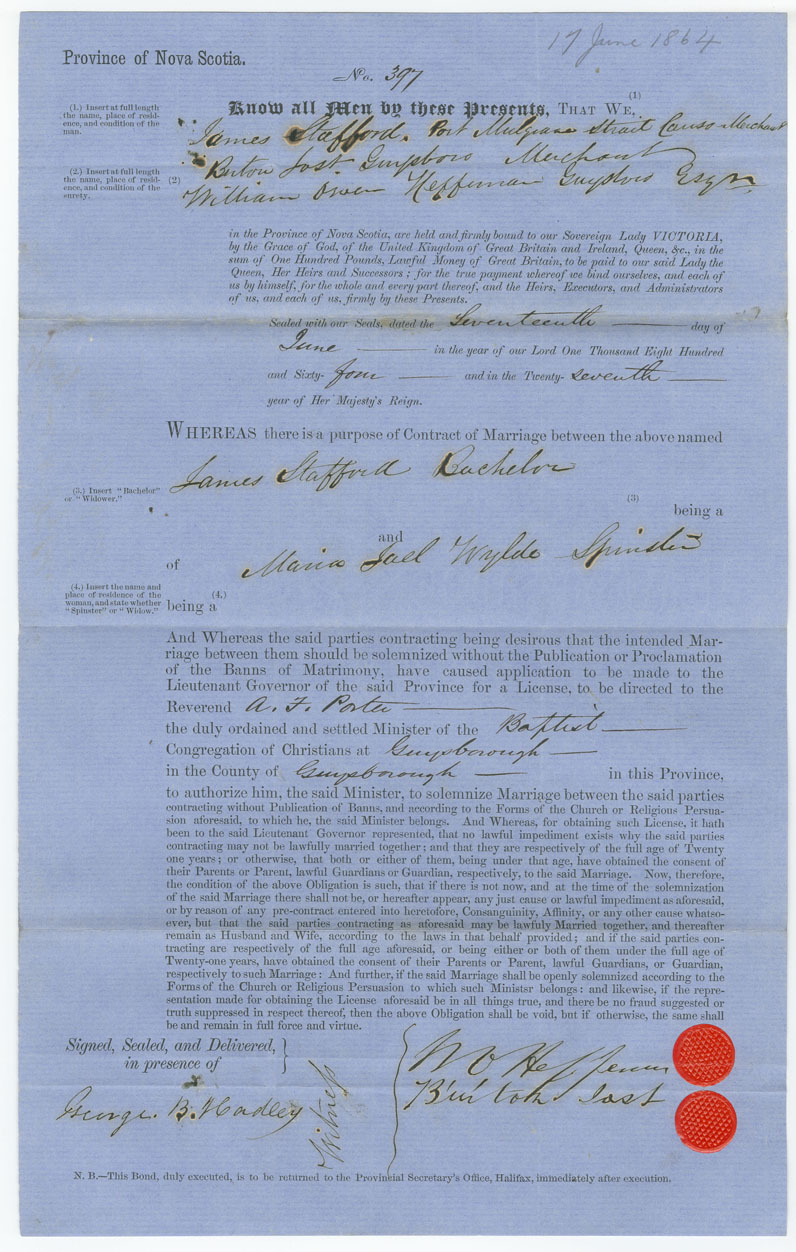 17 June 1864
Province of Nova Scotia.
No. 397
(1)
Know all Men by these Presents, THAT WE,
(1.) Insert at full length
the name, place of resid-
ence, and condition of the
man.
James Stafford. Port Mulgrave Strait Canso Merchant
(2.) Insert at full length
the name, place of resid-
ence, and condition of the
surety.
(2)
Burton Jost Guysboro Merchant
William Owen Heffernan Guysboro Esqr
in the Province of Nova Scotia, are held and firmly bound to our Sovereign Lady VICTORIA,
by the Grace of God, of the United Kingdom of Great Britain and Ireland, Queen, &c., in the
sum of One Hundred Pounds, Lawful Money of Great Britain, to be paid to our said Lady the
Queen, Her Heirs and Successors ; for the true payment whereof we bind ourselves, and each of
us by himself, for the whole and every part thereof, and the Heirs, Executors, and Administrators
of us, and each of us, firmly by these Presents.
Sealed with our Seals, dated the Seventeenth day of
June in the year of our Lord One Thousand Eight Hundred
and Sixty- four and in the Twenty- seventh
year of Her Majesty's Reign.
WHEREAS there is a purpose of Contract of Marriage between the above named
James Stafford Bachelor
(3.) Insert "Bachelor"
or "Widower."
(3)
being a
and
of Maria Jael Wylde Spinster
(4.) Insert the name and
place of residence of the
woman, and state whether
"Spinster" or "Widow."
(4.)
being a
And Whereas the said parties contracting being desirous that the intended Mar-
riage between them should be solemnized without the Publication or Proclamation
of the Banns of Matrimony, have caused application to be made to the
Lieutenant Governor of the said Province for a License, to be directed to the
Reverend A. F. Porter
the duly ordained and settled Minister of the Baptist
Congregation of Christians at Guysborough
in the County of Guysborough in this Province,
to authorize him, the said Minister, to solemnize Marriage between the said parties
contracting without Publication of Banns, and according to the Forms of the Church or Religious Persua-
sion aforesaid, to which he, the said Minister belongs. And Whereas, for obtaining such License, it hath
been to the said Lieutenant Governor represented, that no lawful impediment exists why the said parties
contracting may not be lawfully married together; and that they are respectively of the full age of Twenty
one years ; or otherwise, that both or either of them, being under that age, have obtained the consent of
their Parents or Parent, lawful Guardians or Guardian, respectively, to the said Marriage. Now, therefore,
the condition of the above Obligation is such, that if there is not now, and at the time of the solemnization
of the said Marriage there shall not be, or hereafter appear, any just cause or lawful impediment as aforesaid,
or by reason of any pre-contract entered into heretofore, Consanguinity, Affinity, or any other cause whatso-
ever, but that the said parties contracting as aforesaid may be lawfuly Married together, and thereafter
remain as Husband and Wife, according to the laws in that behalf provided ; and if the said parties con-
tracting are respectively of the full age aforesaid, or being either or both of them under the full age of
Twenty-one years, have obtained the consent of their Parents or Parent, lawful Guardians, or Guardian,
respectively to such Marriage : And further, if the said Marriage shall be openly solemnized according to the
Forms of the Church or Religious Persuasion to which such Ministsr belongs : and likewise, if the repre-
sentation made for obtaining the License aforesaid be in all things true, and there be no fraud suggested or
truth suppressed in respect thereof, then the above Obligation shall be void, but if otherwise, the same shall
be and remain in full force and virtue.
Signed, Sealed, and Delivered,
in presence of
George B. Hadley
Witness
W O Heffernan
Burton Jost
N. B.—This Bond, duly executed, is to be returned to the Provincial Secretary's Office, Halifax, immediately after execution.